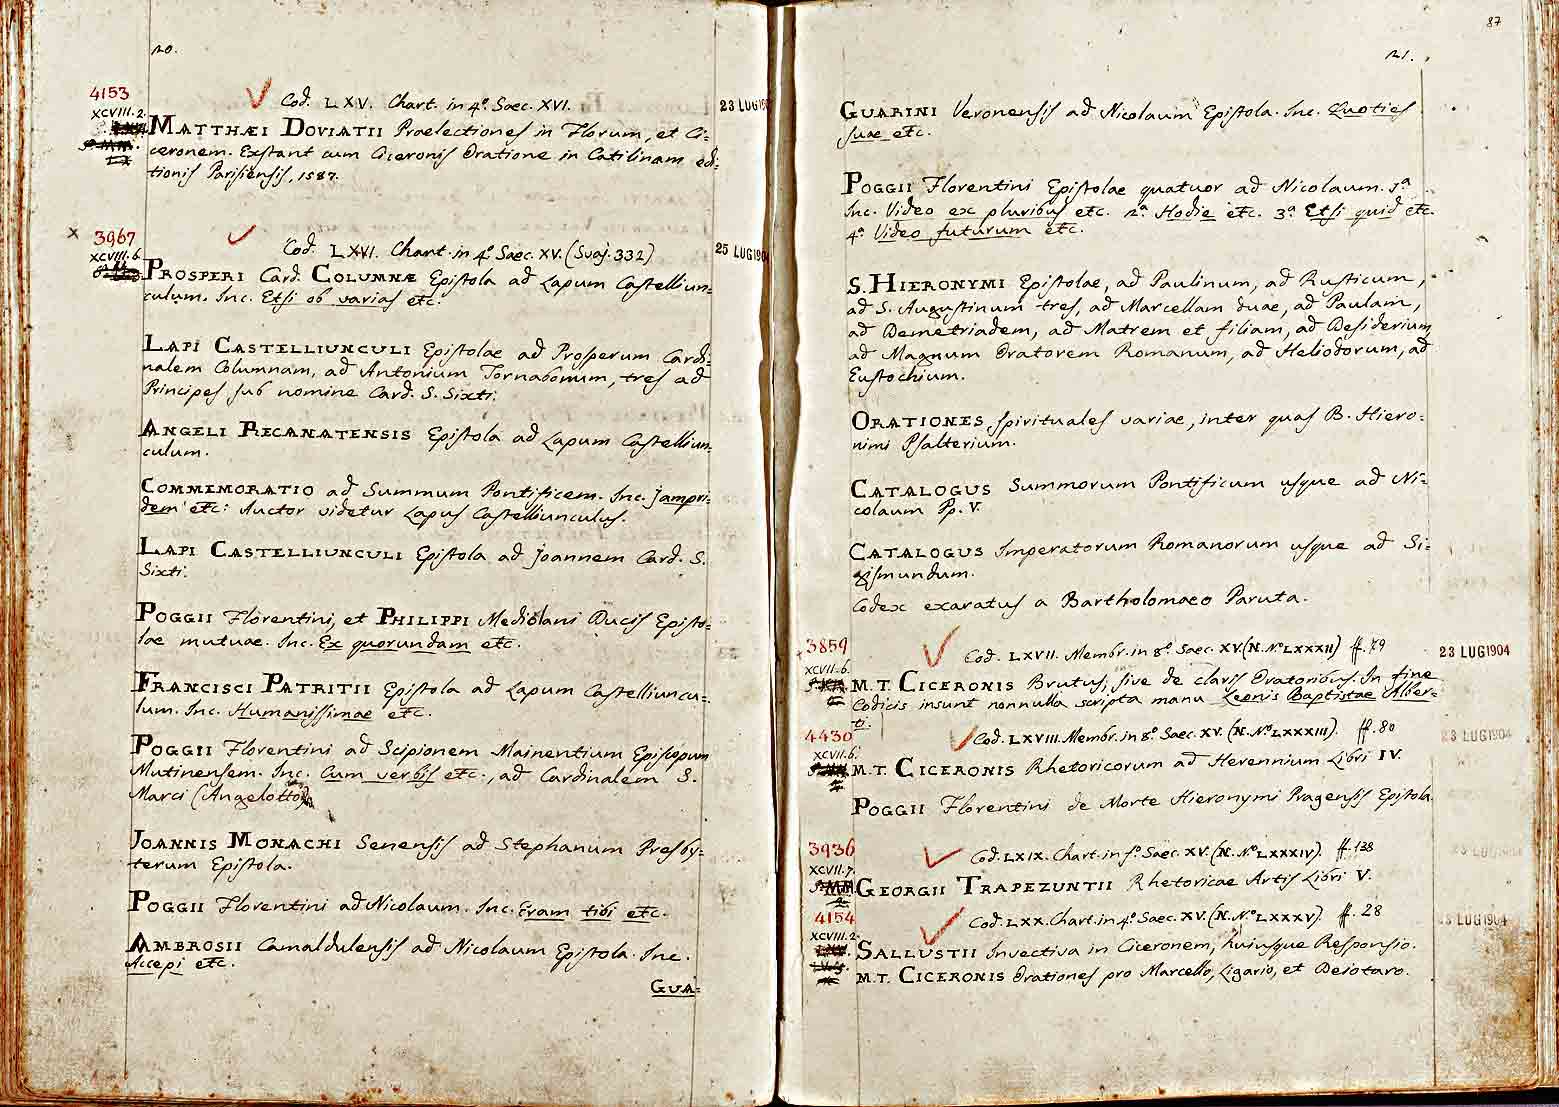 20.
4153
XCVIII.2.
Cod. LXV. Chart. in 4º. Saec. XVI.
23 LUG
MATTHÆI DOVIATII Praelectiones in Florum, et Ci=
ceronem. Exstant cum Ciceronis Oratione in Catilinam edi=
tionis Parisiensis, 1587.
x 3967
XCVIII.6.
Cod. LXVI. Chart. in 4º. Saec. XV. (Suaj. 332)
25 LUG 190
PROSPERI Card. COLUMNÆ Epistola ad Lapum Castelliun=
culum. Inc. Etsi ob varias etc.
LAPI CASTELLIUNCULI Epistolae ad Prosperum Cardi=
nalem Columnam, ad Antonium Tornabonum, tres ad
Principes sub nomine Card. S. Sixti.
ANGELI RECANATENSIS Epistola ad Lapum Castelliun=
culum.
COMMEMORATIO ad Summum Pontificem. Inc. jampri=
dem etc: Auctor videtur Lapus Castelliunculus.
LAPI CASTELLIUNCULI Epistola ad Joannem Card. S.
Sixti.
POGGII Florentini, et PHILIPPI Mediolani Ducis Episto=
lae mutuae. Inc. Ex quorundam etc.
FRANCISCI PATRITII Epistola ad Lapum Castelliuncu=
lum. Inc. Humanissimae etc.
POGGII Florentini ad Scipionem Mainentium Episcopum
Mutinensem. Inc. Cum verbis etc., ad Cardinalem S.
Marci (Angelotto)
JOANNIS MONACHI Senensis ad Stephanum Presby=
terum Epistola.
POGGII Florentini ad Nicolaum. Inc. Eram tibi etc.
AMBROSII Camaldulensis ad Nicolaum Epistola. Inc.
Accepi etc.
GUA=
87
21.
GUARINI Veronensis ad Nicolaum Epistola. Inc. Quoties
suae etc.
POGGII Florentini Epistolae quatuor ad Nicolaum. 1ª
Inc. Video ex pluribus etc. 2ª Hodie etc. 3ª Etsi quid etc.
4ª Video futurum etc.
S. HIERONYMI Epistolae, ad Paulinum, ad Rusticum,
ad S. Augustinum tres, ad Marcellam duae, ad Paulam,
ad Demetriadem, ad Matrem et filiam, ad Desiderium,
ad Magnum Oratorem Romanum, ad Heliodorum, ad
Eustochium.
ORATIONES spirituales variae, inter quas B. Hiero=
nimi Psalterium.
CATALOGUS Summorum Pontificum usque ad Ni=
colaum Pp. V.
CATALOGUS Imperatorum Romanorum usque ad Si=
gismundum.
Codex exaratus a Bartholomaeo Paruta.
3859
XCVII.6.
Cod. LXVII. Membr. in 8º. Saec. XV. (N. Nº LXXXII) ff. 79
23 LUG 1904
M.T. CICERONIS Brutus, sive de claris Oratoribus. In fine
Codicis insunt nonnulla scripta manu Leonis Baptistae Alber=
ti.
4430
XCVII.6.
Cod. LXVIII. Membr. in 8º. Saec. XV. (N. Nº LXXXIII). ff. 80
23 LUG 1904
M.T. CICERONIS Rhetoricorum ad Herennium Libri IV.
POGGII Florentini de Morte Hieronymi Pragensis Epistola.
3936
XCVII.7.
Cod. LXIX. Chart. in fº. Saec. XV. (N. Nº LXXXIV). ff. 138
GEORGII TRAPEZUNTII Rhetoricae Artis Libri V.
4154
XCVIII.2.
Cod. LXX. Chart. in 4º. Saec. XV. (N. Nº LXXXV). ff. 28
LUG 1904
SALLUSTII Invectiva in Ciceronem, huiusque Responsio.
M.T. CICERONIS Orationes pro Marcello, Ligario, et Deiotaro.